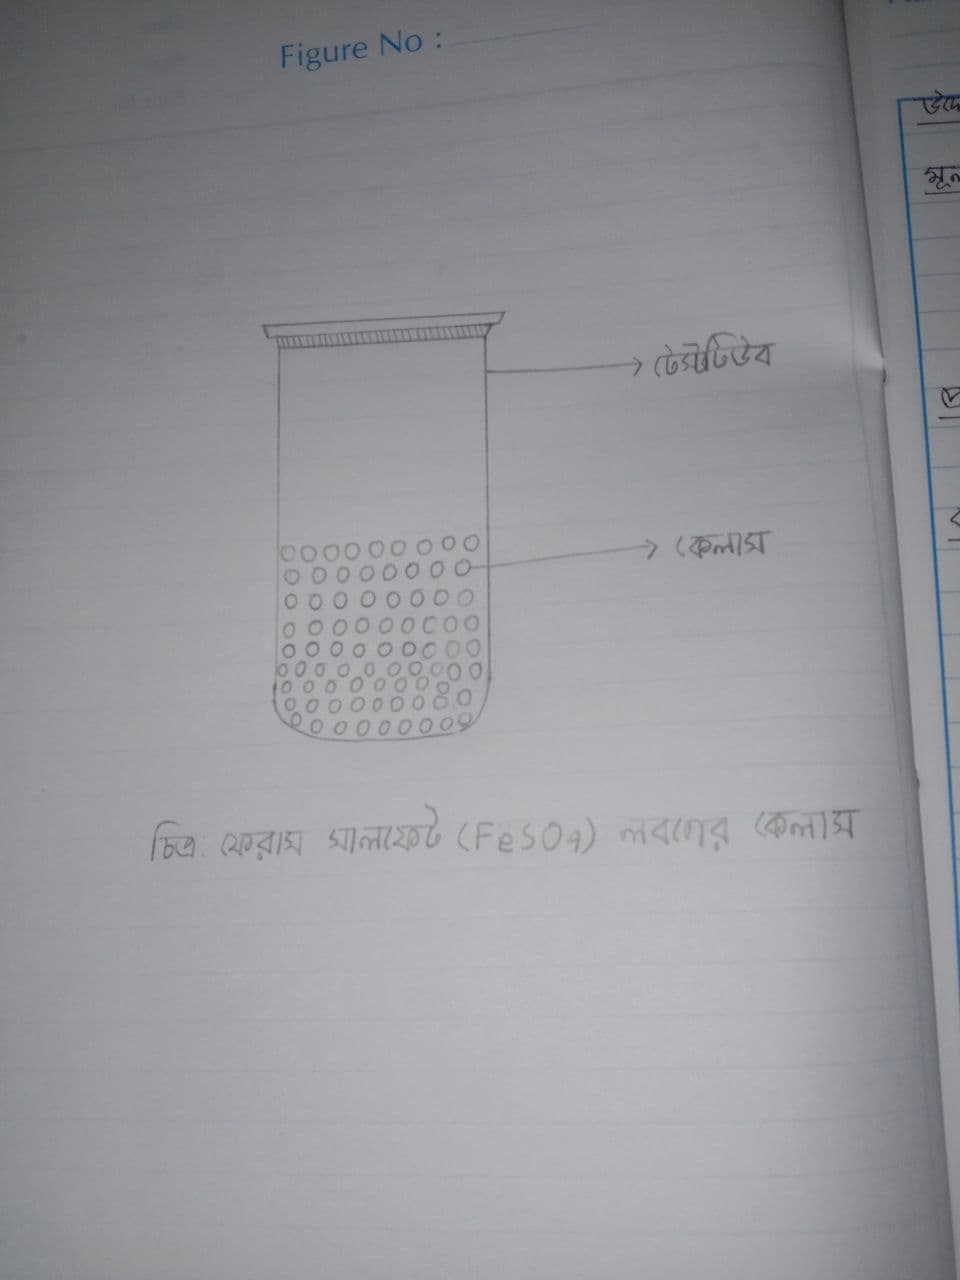 Figure No :
টেস্টটিউব
কেলাস
চিত্র: ফেরাস সালফেট (FeSO4) লবণের কেলাস